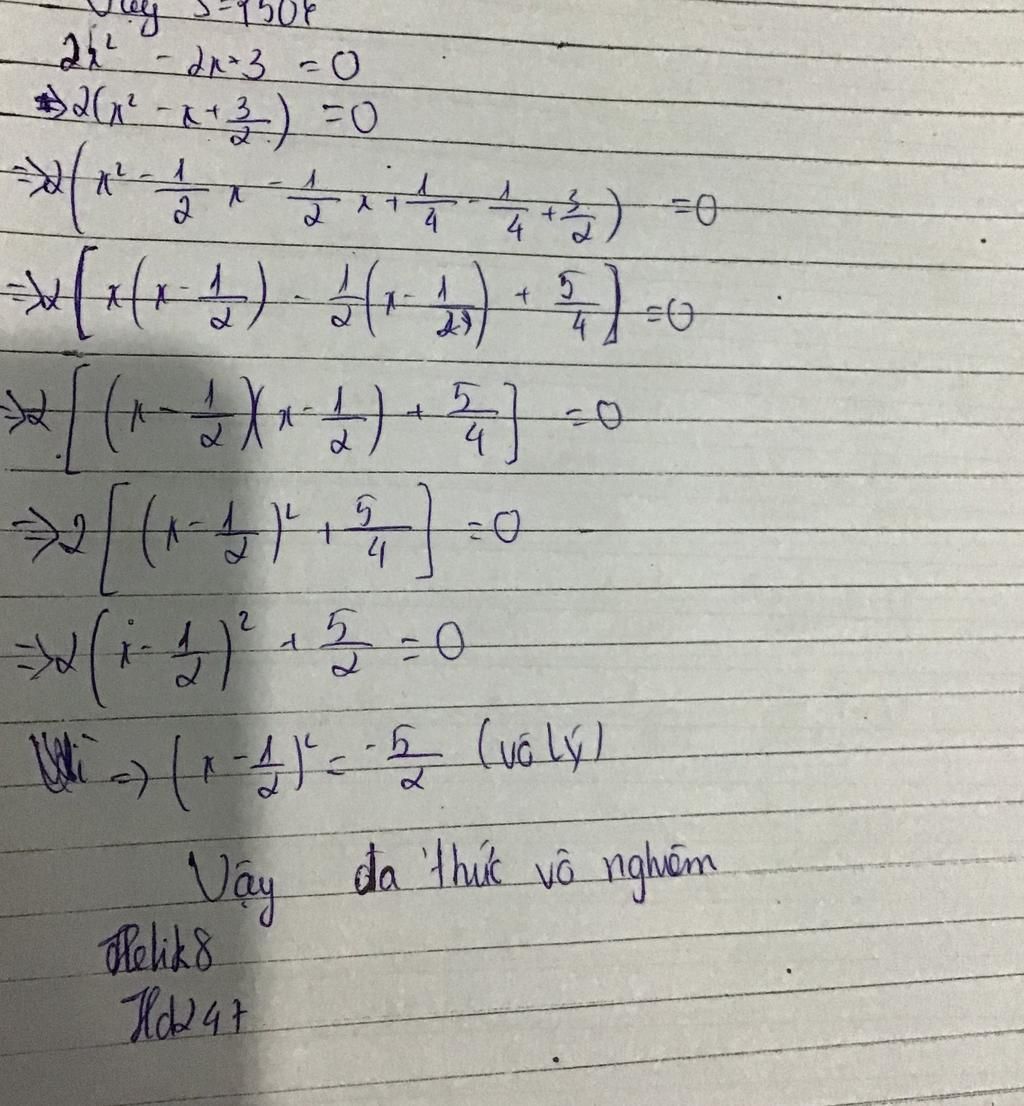 Vậy S=150
2x² - 2x+3 = 0
⇒ 2(x² - x + 3/2) = 0
⇒ 2(x² - 1/2 x - 1/2 x + 1/4 - 1/4 + 3/2) = 0
⇒ 2[x(x - 1/2) - 1/2(x - 1/2) + 5/4] = 0
⇒ 2[(x - 1/2)(x - 1/2) + 5/4] = 0
⇒ 2[(x - 1/2)² + 5/4] = 0
⇒ 2(x - 1/2)² + 5/2 = 0
⇒ (x - 1/2)² = -5/2 (vô lý)
Vậy đa thức vô nghiệm
Helik8